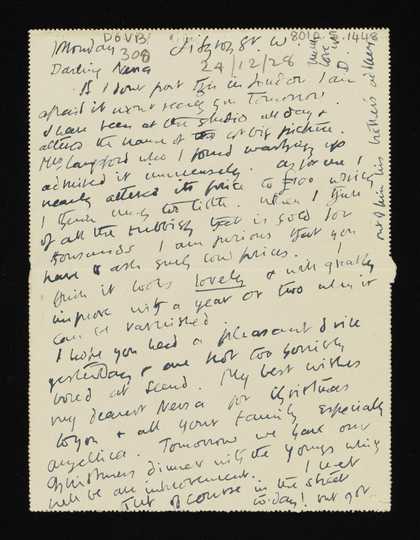 DOVB
8010.5.1448
Monday 308 Fitzroy St. W.
24/12/28
Darling Nessa
If I dont post this in London I am
afraid it wont reach you tomorrow!
I have been at the studio all day &
altered the name of the big picture.
Mrs Langford who I found washing up
admired it immensely. As for me I
nearly altered the price to £100 which
I think much too little. When I think
of all the rubbish that is sold for
thousands I am furious that you
have to ask such low prices. I
think it looks lovely & will greatly
improve with a year or two when it
can be varnished
I hope you had a pleasant drive
yesterday & are not too horribly
bored at Seend. My best wishes
my dearest Nessa for Christmas
to you & all your family especially
Angelica. Tomorrow we have our
Christmas dinner with the Youngs which
will be an improvement. I met
Tut of course in the street
to-day! but got
much
love
from
D